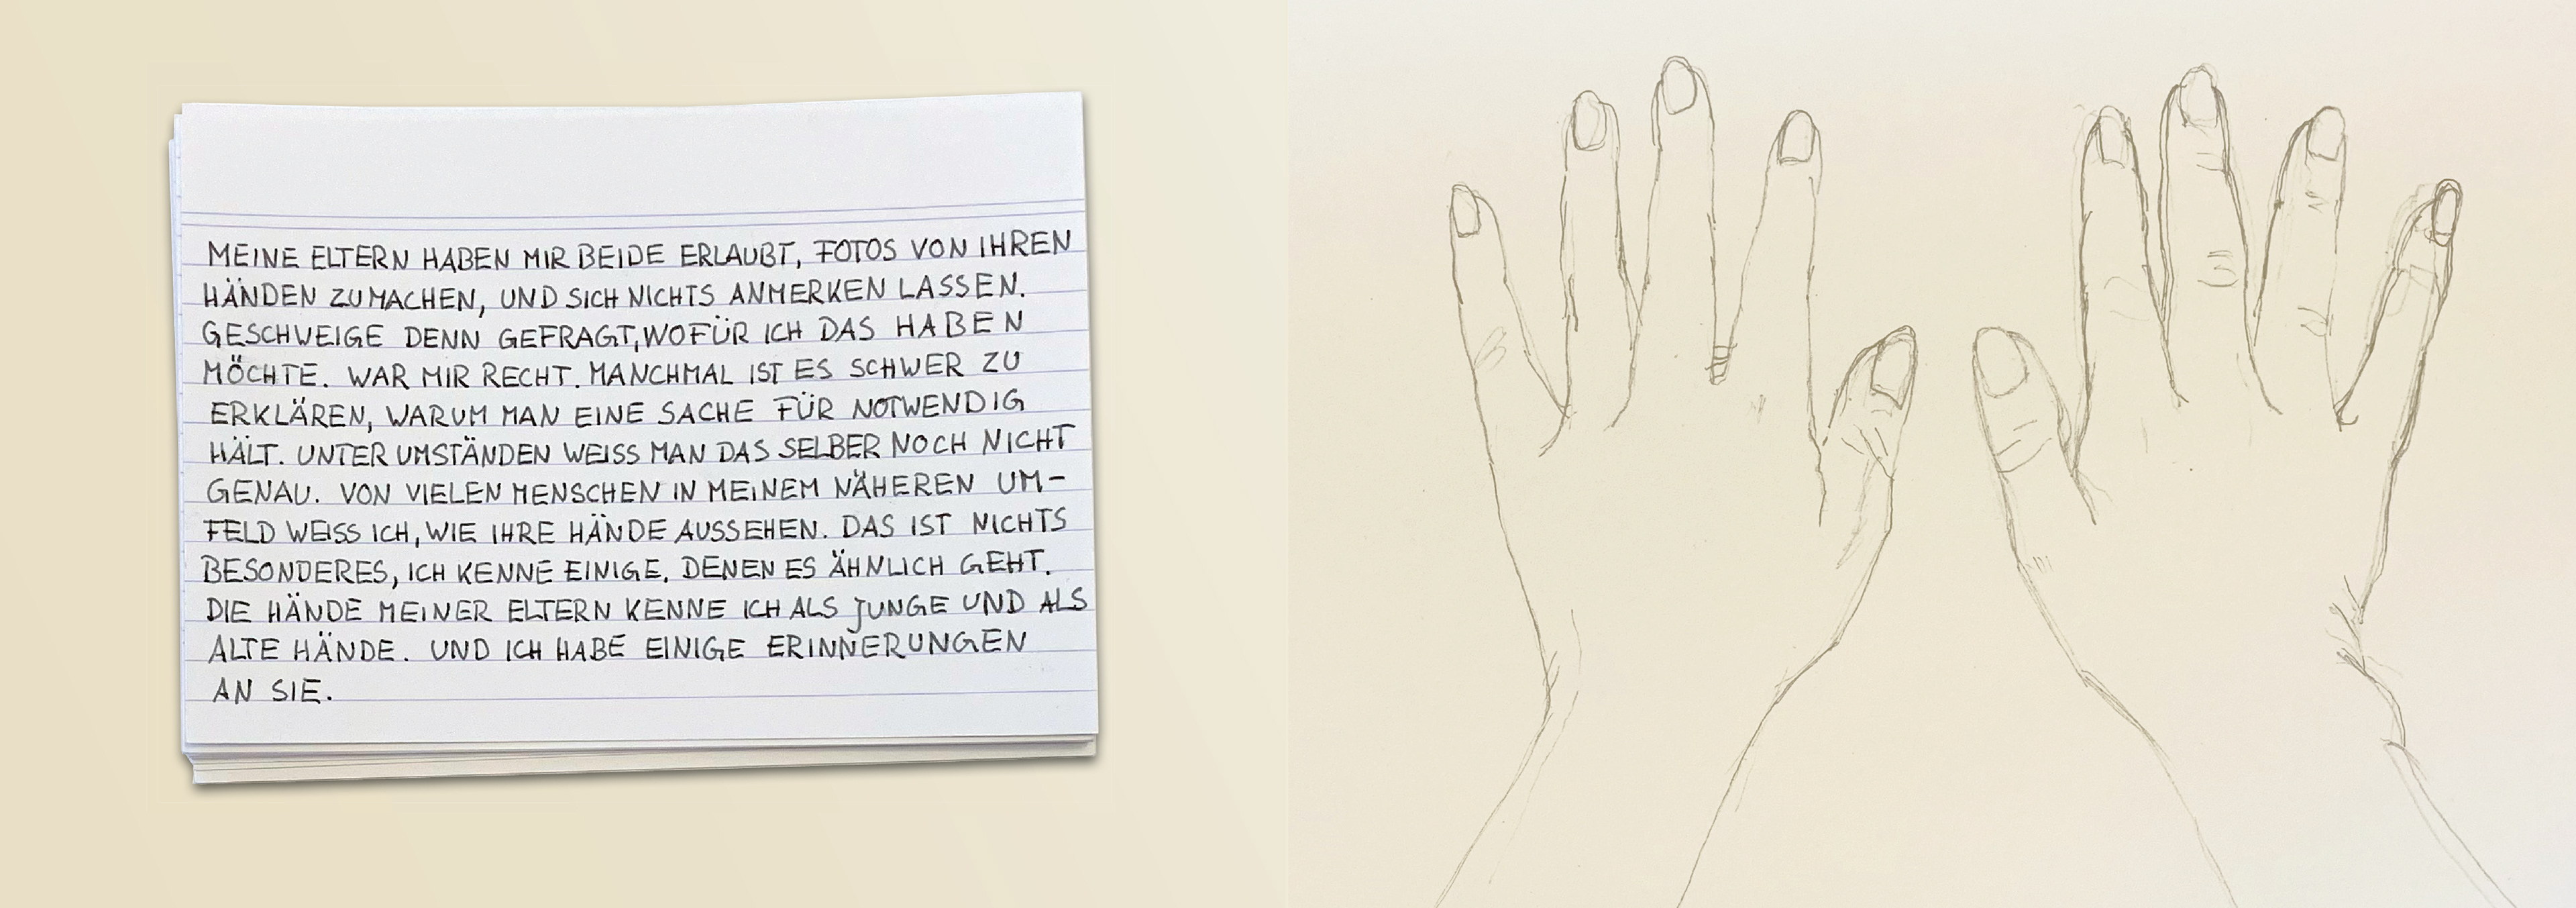 MEINE ELTERN HABEN MIR BEIDE ERLAUBT, FOTOS VON IHREN
HÄNDEN ZU MACHEN, UND SICH NICHTS ANMERKEN LASSEN.
GESCHWEIGE DENN GEFRAGT, WOFÜR ICH DAS HABEN
MÖCHTE. WAR MIR RECHT. MANCHMAL IST ES SCHWER ZU
ERKLÄREN, WARUM MAN EINE SACHE FÜR NOTWENDIG
HÄLT. UNTER UMSTÄNDEN WEISS MAN DAS SELBER NOCH NICHT
GENAU. VON VIELEN MENSCHEN IN MEINEM NÄHEREN UM-
FELD WEISS ICH, WIE IHRE HÄNDE AUSSEHEN. DAS IST NICHTS
BESONDERES, ICH KENNE EINIGE, DENEN ES ÄHNLICH GEHT.
DIE HÄNDE MEINER ELTERN KENNE ICH ALS JUNGE UND ALS
ALTE HÄNDE. UND ICH HABE EINIGE ERINNERUNGEN
AN SIE.